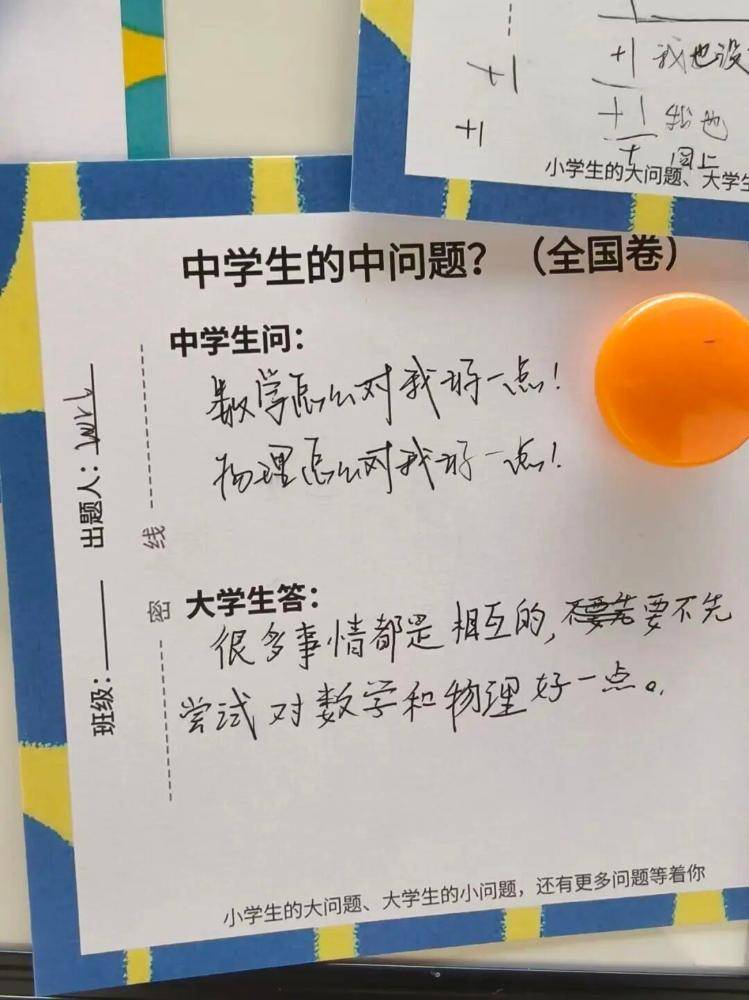 +1
+1 我也没
+1
+1 我也
+ 同上
小学生的大问题、大学生
中学生的中问题？（全国卷）
中学生问：
数学怎么对我好一点！
物理怎么对我好一点！
出题人：wrl
班级：
密
线
大学生答：
很多事情都是相互的，不要先要不先
尝试对数学和物理好一点。
小学生的大问题、大学生的小问题，还有更多问题等着你